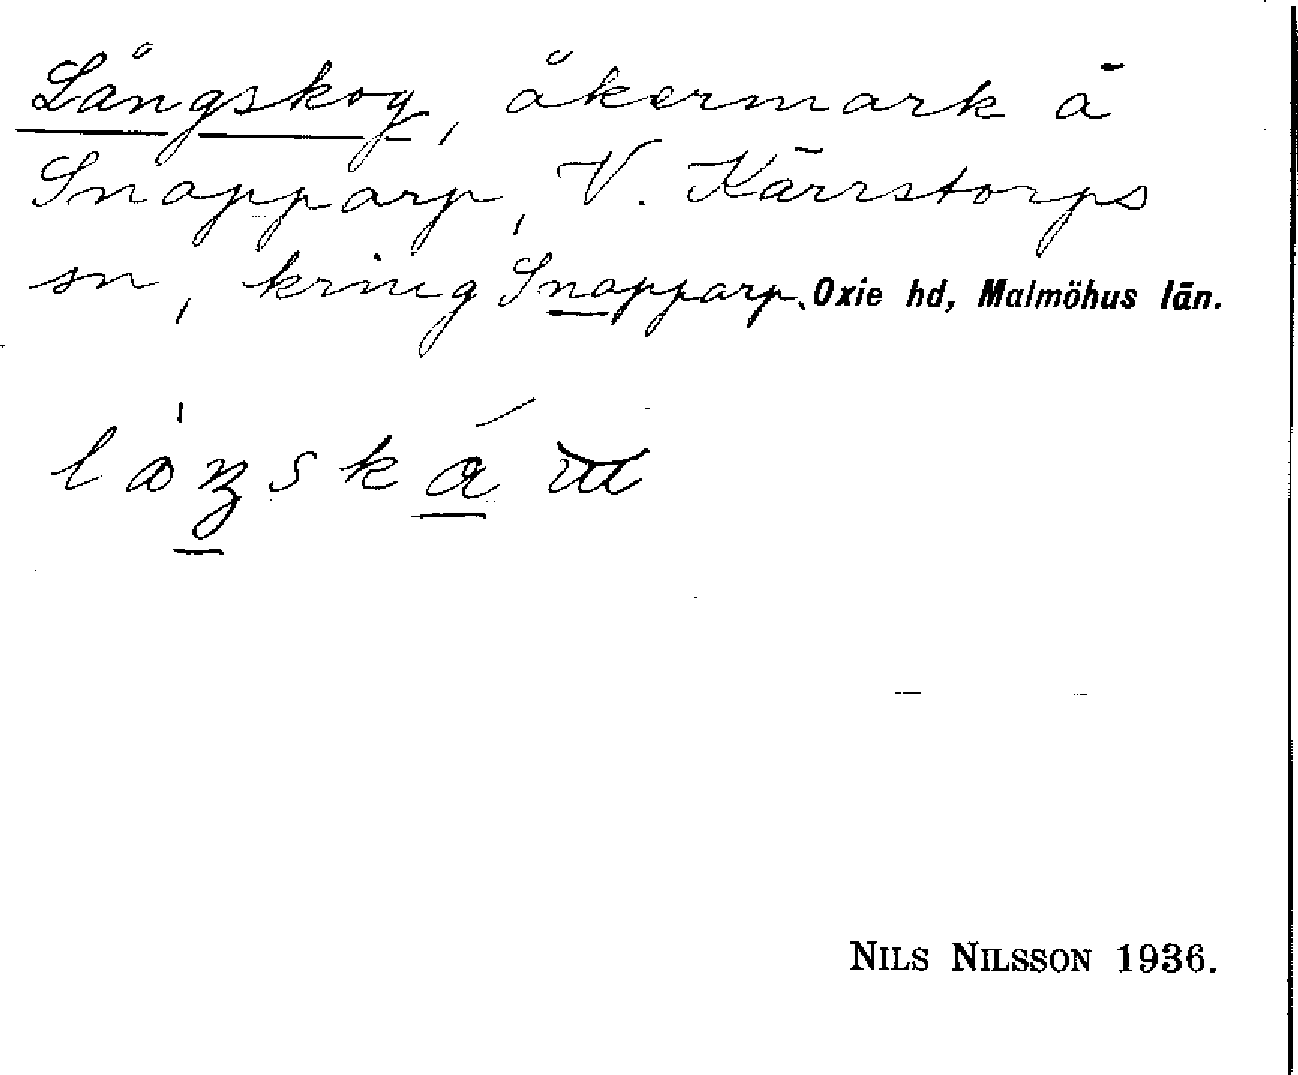 Långskog, åkermark å
Snapparp, V. Kärrstorps
sn, kring Snapparp. Oxie hd, Malmöhus län.
NILS NILSSON 1936.